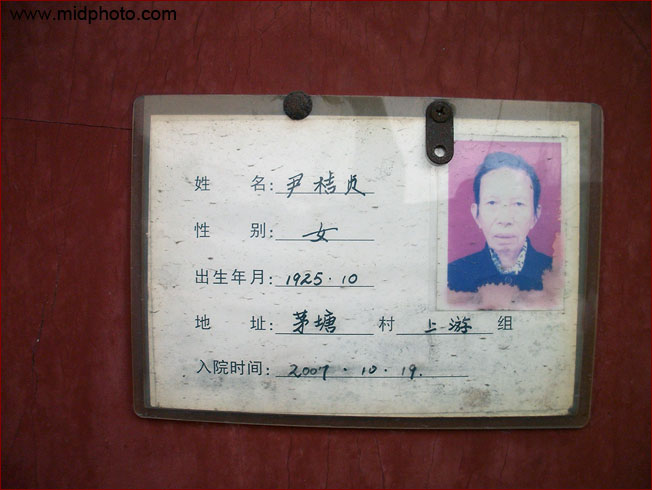 www.midphoto.com
姓 名: 尹桔贞
性 别: 女
出生年月: 1925.10
地 址: 茅塘 村 上游 组
入院时间: 2007.10.19.